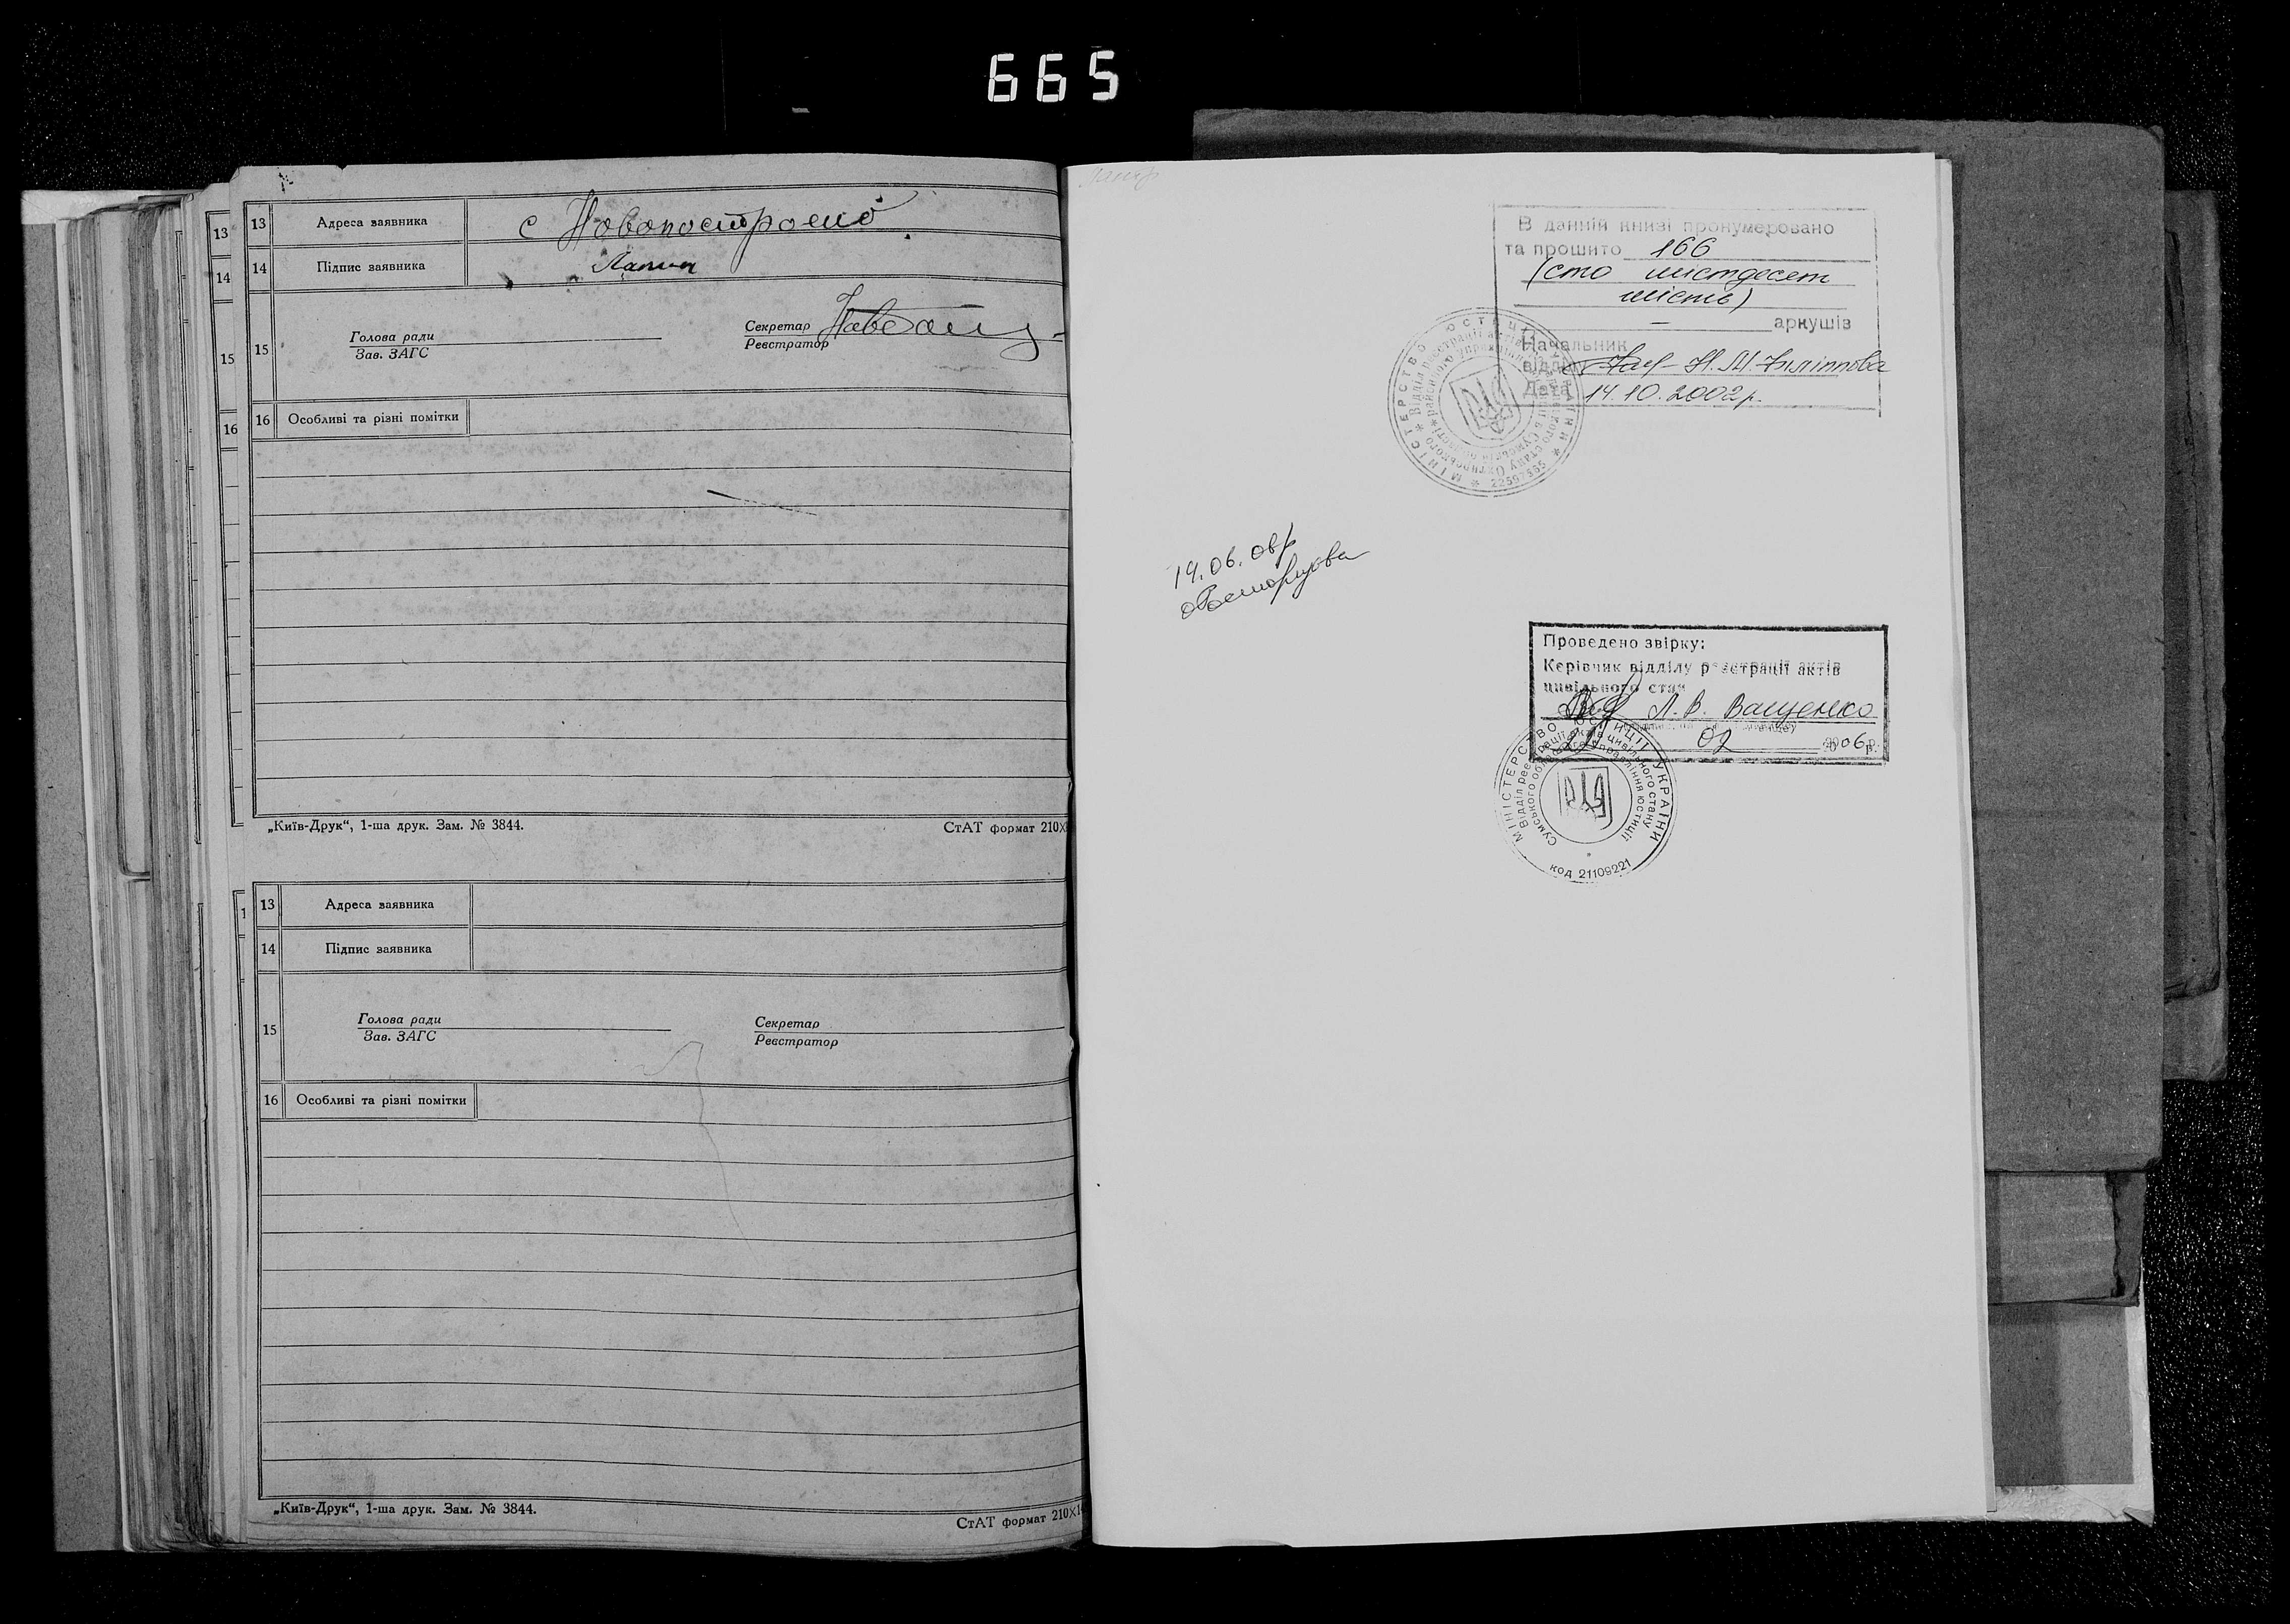 665
13 Адреса заявника с Новопостроено
14 Підпис заявника
15 Голова ради
Зав. ЗАГС
Секретар
Реєстратор
16 Особливі та різні помітки
„Київ-Друк“, 1-ша друк. Зам. № 3844.
СтАТ формат 210X
13 Адреса заявника
14 Підпис заявника
15 Голова ради
Зав. ЗАГС
Секретар
Реєстратор
16 Особливі та різні помітки
„Київ-Друк“, 1-ша друк. Зам. № 3844.
СтАТ формат 210X1
13
14
15
16
В данній книзі пронумеровано
та прошито 166
(сто шистдесят
шість)
– аркушів
Начальник
відділу Н. М. Філіппова
Дата 14.10.2002р.
22597355
19.06.
Проведено звірку:
Керівник відділу реєстрації актів
цивільного стан
Л. В. Ващенко
02 2006р.
МІНІСТЕРСТВО ЮСТИЦІЇ УКРАЇНИ
Відділ реєстрації актів цивільного стану
Сумського обласного управління юстиції
код 21109221